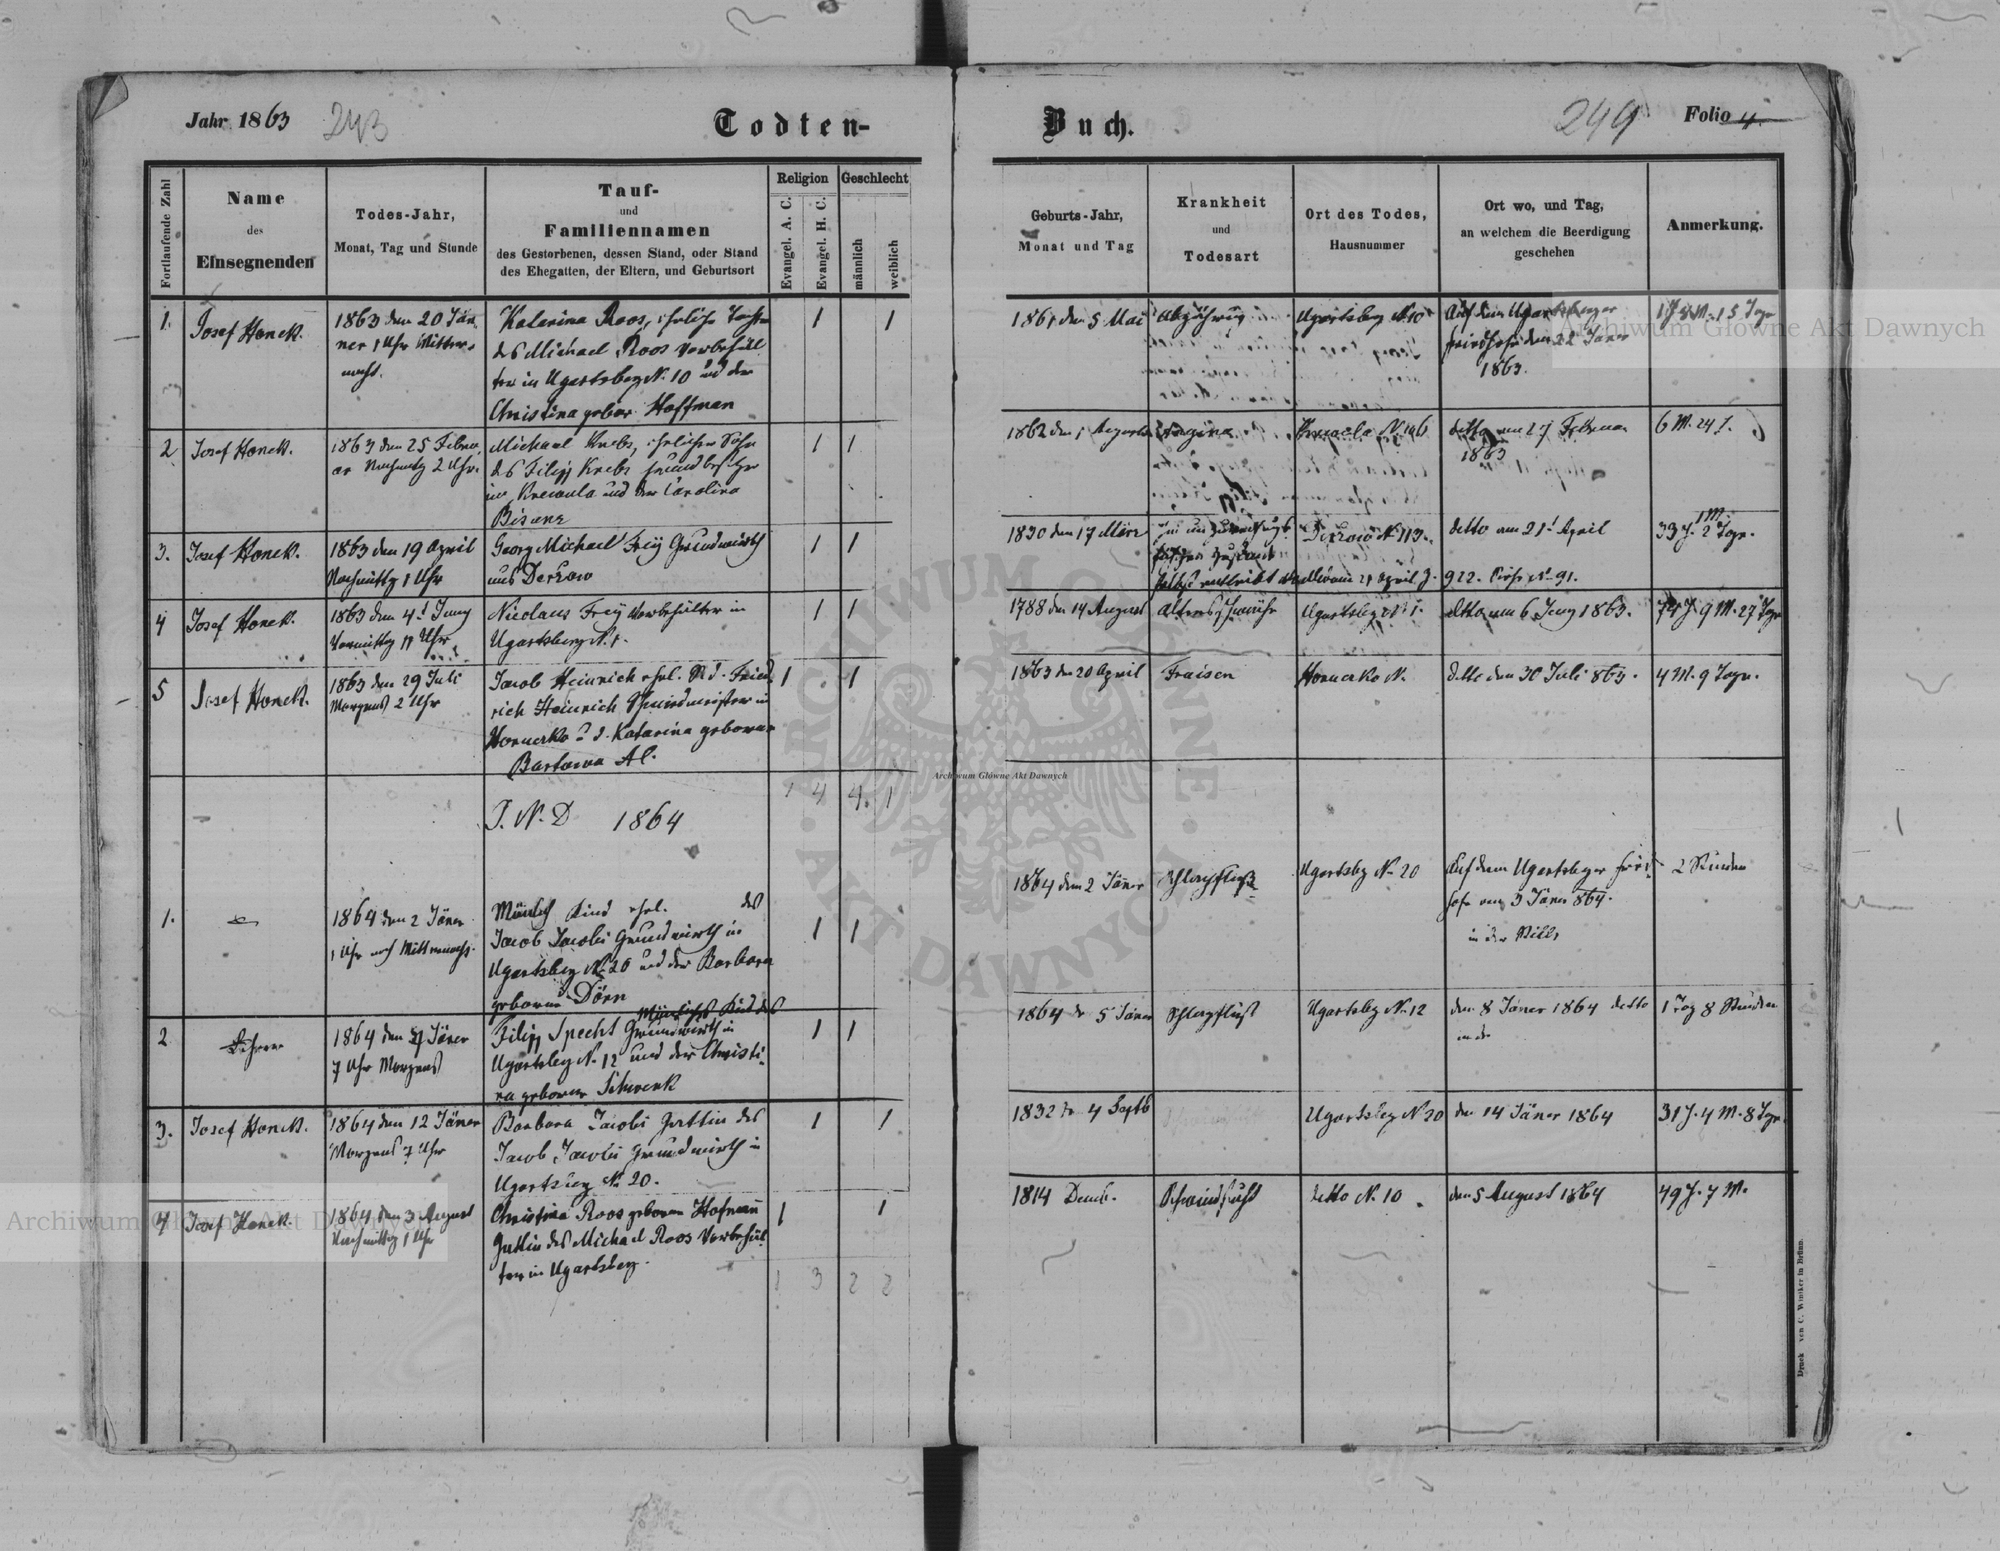 Jahr 1863
243
Todten-
Buch.
249
Folio 4.
Fortlaufende Zahl
Name
des
Einsegnenden
Todes-Jahr,
Monat, Tag und Stunde
Tauf-
und
Familiennamen
des Gestorbenen, dessen Stand, oder Stand
des Ehegatten, der Eltern, und Geburtsort
Religion
Evangel. A. C.
Evangel. H. C.
Geschlecht
männlich
weiblich
Geburts-Jahr,
Monat und Tag
Krankheit
und
Todesart
Ort des Todes,
Hausnummer
Ort wo, und Tag,
an welchem die Beerdigung
geschehen
Anmerkung.
1.
Josef Honek.
1863 den 20 Jän
ner 1 Uhr Mitter-
nacht.
Katarina Roos, ehliche Tochter
des Michael Roos Vorbehäl
ter in Ugartsberg N. 10 und der
Christina gebor Hoffman
1
1
1861 den 5 Mai
Abzehrung
Ugartsberg N 10
Auf dem Ugartsberger
Friedhofe den 22 Jäner
1863.
2
Josef Honek.
1863 den 25 Febru
ar Nachmittg 2 Uhr.
Michael Krebs, ehlicher Sohn
des Filipp Krebs Grundbesitzer
in und der Carolina
Bisanz
1
1
1862 den 1 August
Angina
detto am 27 Februar
1863
6 M. 24 T.
3.
Josef Honek.
1863 den 19 April
Nachmittg 1 Uhr
Georg Michael Frey Grundwirth
aus Derzow
1
1
1830 den 17 März
Derzow N. 113.
detto am 21t April
33 J. 1 M. 2 Tage.
922. N. 91.
4
Josef Honek.
1863 den 4t Juny
Vormittg 11 Uhr
Nicolaus Frey Vorbehälter in
Ugartsberg N. 1.
1
1
1788 den 14 August
Altersschwäche
Ugartsberg N 1.
detto am 6 Juny 1863.
74 J. 9 M. 27 Tage
5
Josef Honek.
1863 den 29 Juli
Morgens 2 Uhr
Jacob Heinrich ehl. S. d. Fried
rich Heinrich Schmiedmeister in
Horucko u. d. Katarina geborne
1
1
1863 den 20 April
Fraisen
Horucko N.
detto den 30 Juli 863.
4 M. 9 Tage.
1 4 4. 1
J. N. D 1864
1.
1864 den 2 Jäner
1 Uhr nach Mitternacht.
Männlich Kind ehl. des
Jacob Jacobi Grundwirth in
Ugartsberg N. 20 und der Barbara
geborne Dörn
1
1
1864 den 2 Jäner
Schlagfluß
Ugartsbg N. 20
Auf dem Ugartsberger Fried
hofe am 3 Jäner 864.
in der Stille
2 Stunden
2
1864 den Jäner
7 Uhr Morgens
Männliches Kind des
Filipp Specht Grundwirth in
Ugartsberg N. 12 und der Christi
na geborne Schwenk
1
1
1864 d. 5 Jäner
Schlagfluß
Ugartsbg N. 12
den 8 Jäner 1864 detto
1 Tag 8 Stunden
3.
Josef Honek.
1864 den 12 Jäner
Morgens 7 Uhr
Barbara Jacobi Gattin des
Jacob Jacobi Grundwirth in
Ugartsberg N. 20.
1
1
1832 d. 4 Septb
Ugartsbg N 20
den 14 Jäner 1864
31 J. 4 M. 8 Tage.
4
Josef Honek.
1864 den 3 August
Nachmittg 1 Uhr
Christina Roos geborne Hofmann
Gattin des Michael Roos Vorbehäl
ter in Ugartsberg.
1
1
1814 Decmb.
Schwindsucht
detto N. 10
den 5 August 1864
49 J. 7 M.
1 3 2 2
Druck von C. Winiker in Brünn.
Archiwum Główne Akt Dawnych
Archiwum Główne Akt Dawnych
Archiwum Główne Akt Dawnych
ARCHIWUM GŁÓWNE
AKT DAWNYCH